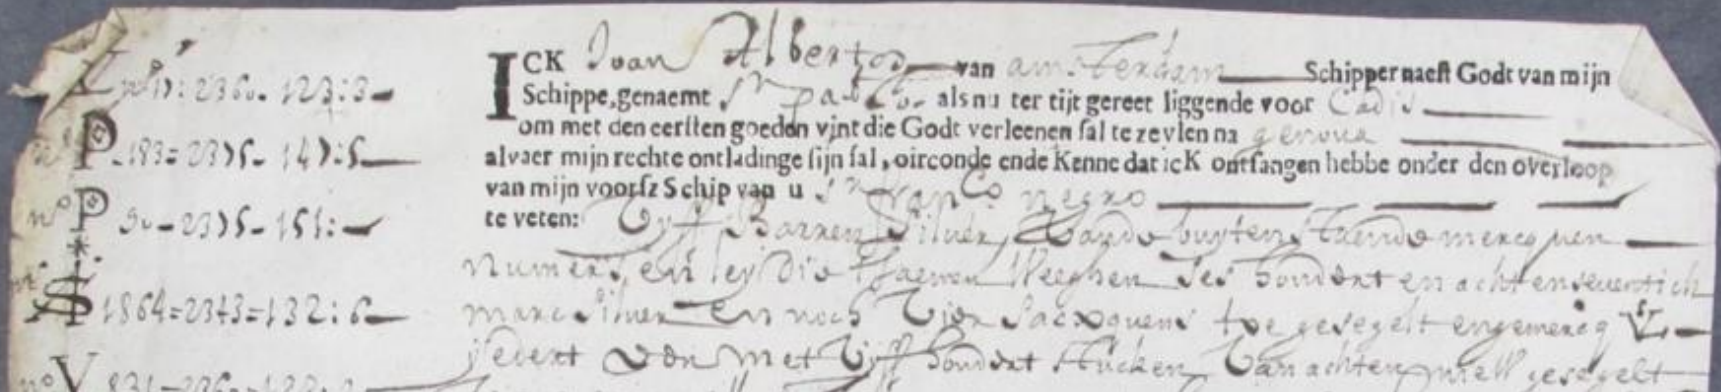 n° 1): 2360- 123:3-
P-183=23)5-14):5-
n° P 30-23)5-151:-
1864=2343=132:6-
n° V 831-
ICK Juan Albertos van amsterdam Schipper naest Godt van mijn
Schippe, genaemt Sr pablo. als nu ter tijt gereet liggende voor Cadis
om met den eersten goeden vvint die Godt verleenen sal te zeylen na genoua
alvaer mijn rechte ontladinge sijn sal, oirconde ende Kenne dat icK ontfangen hebbe onder den overloop
van mijn voorsz Schip van u Sr franco negro
te veten: Vyff Barren Silver, Van de buyten staende mercq men
Numers en ley die tsaemen Weeghen Ses hondert en acht en seuentich
marc Silver En noch Vier Sacxquens toe gesegelt en gemercq
jedert Van met Vyff hondert stucken Van achten, well gesegelt